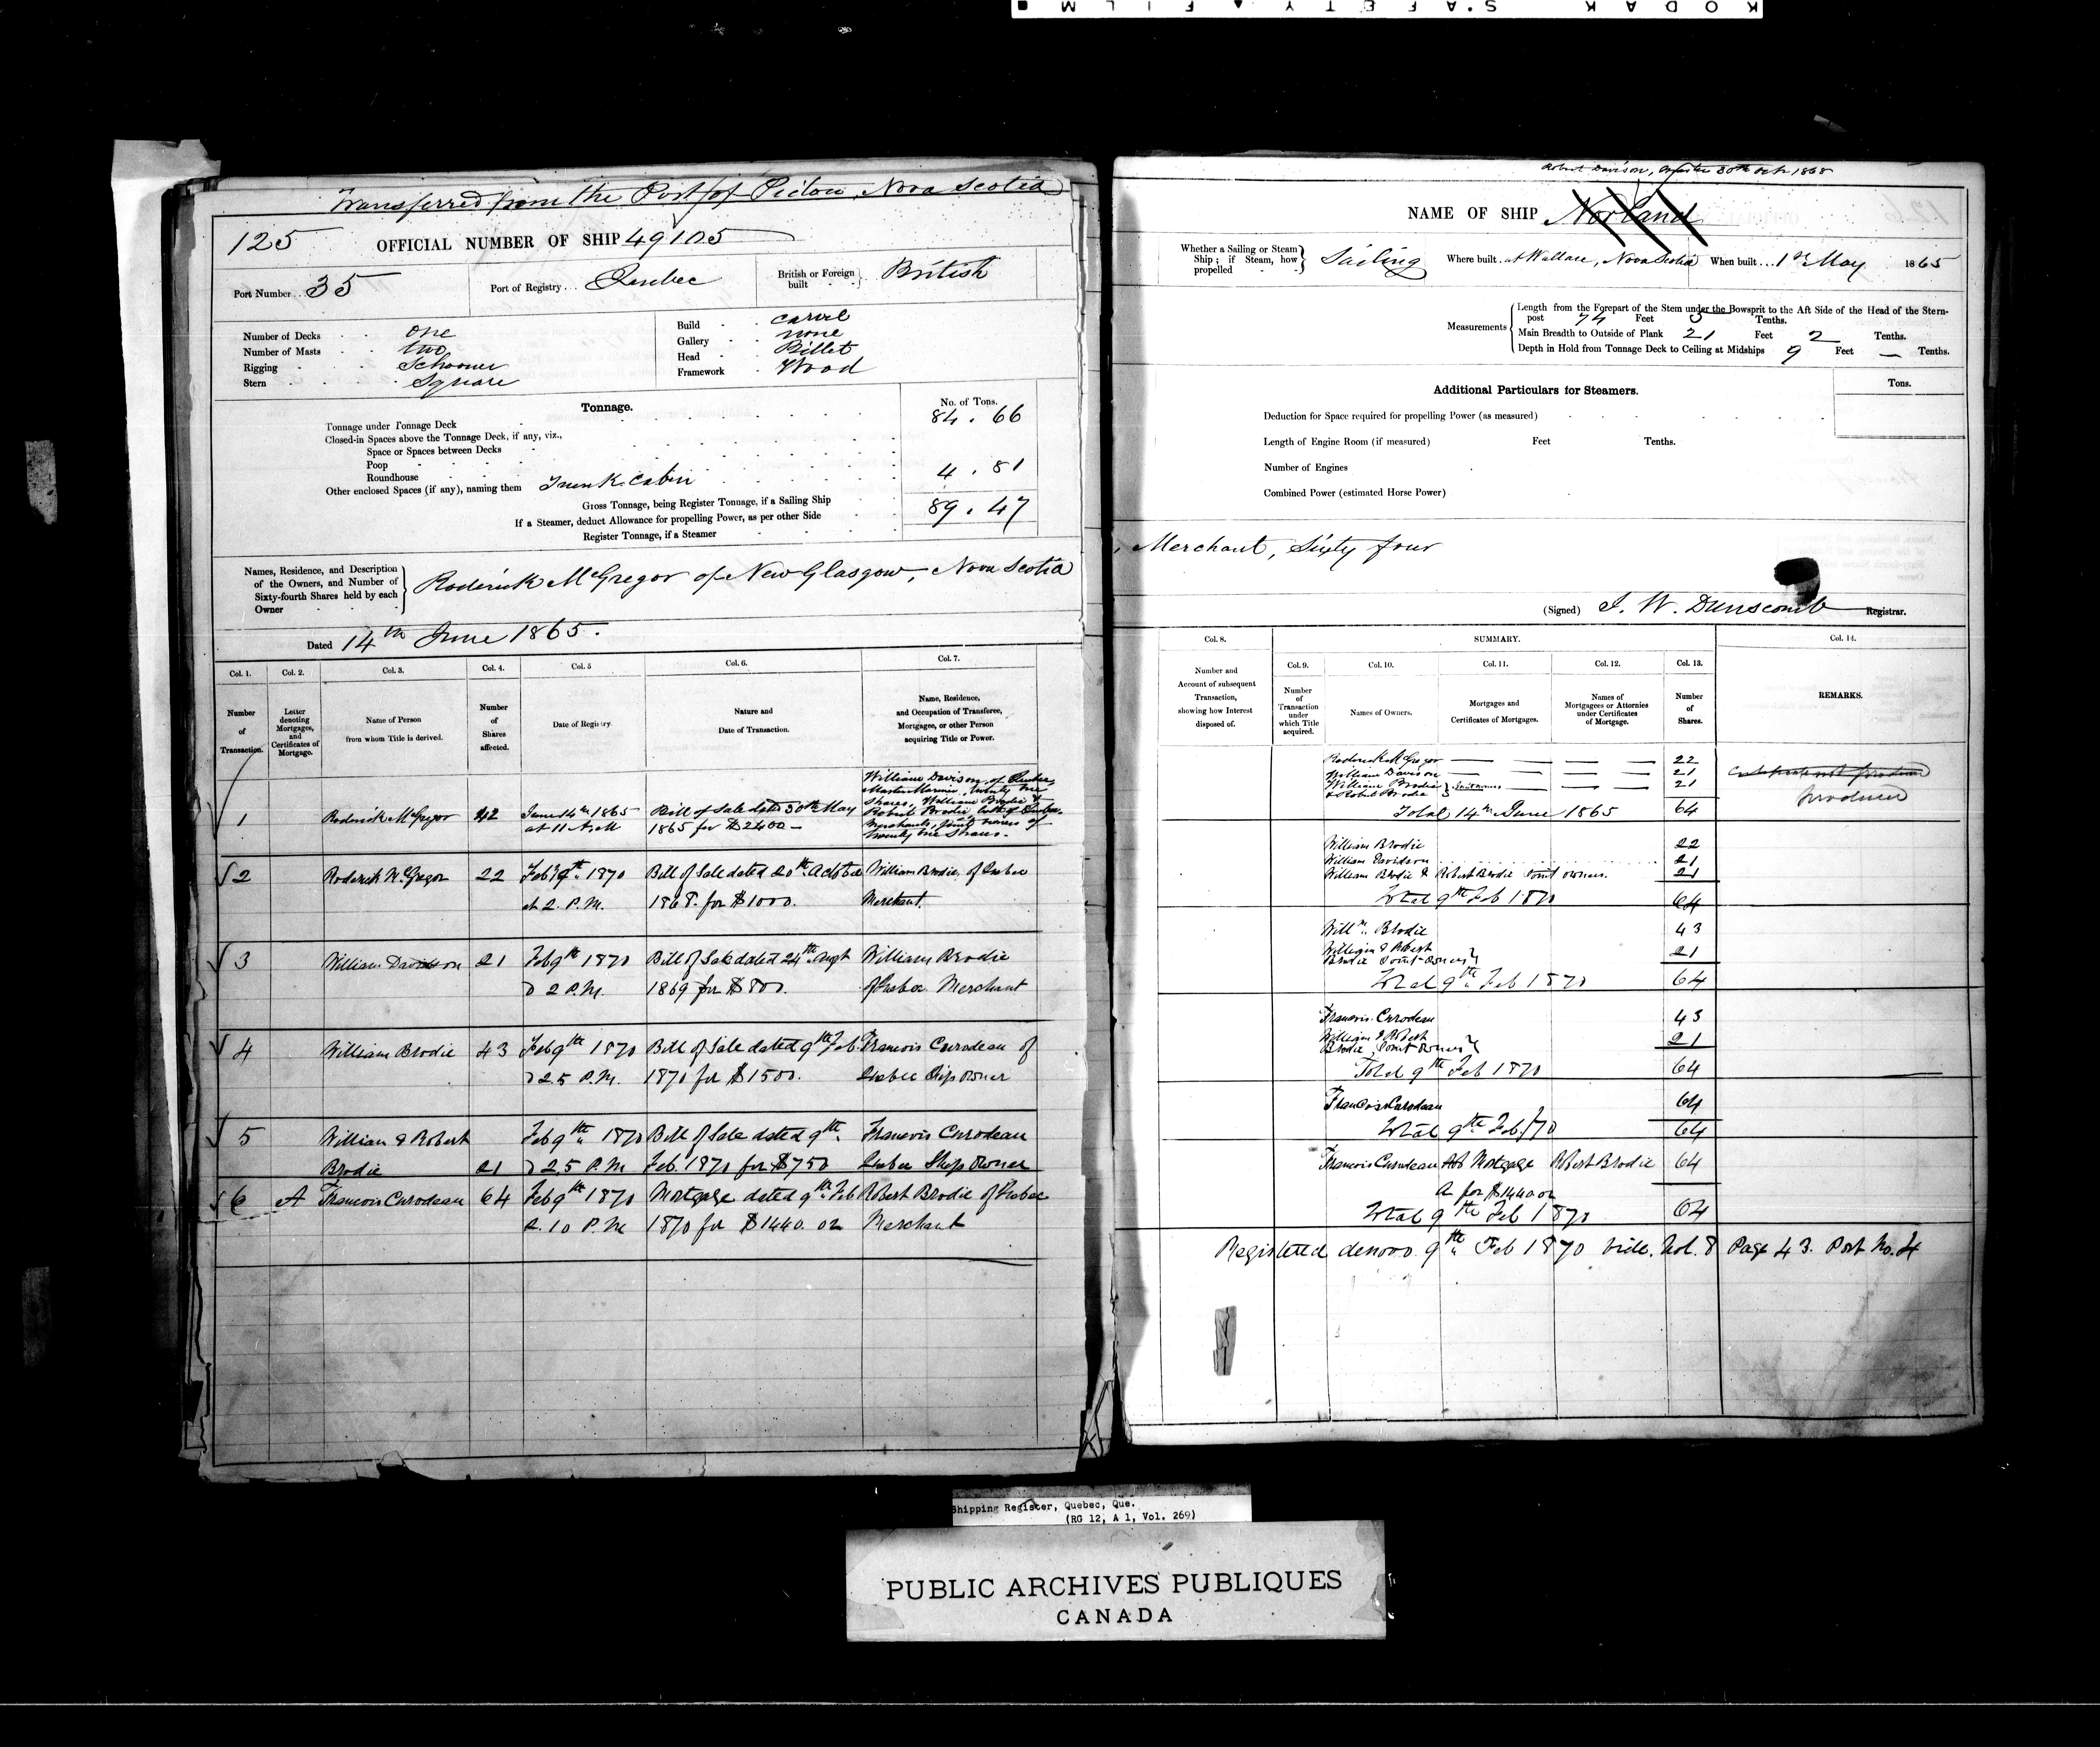 KODAK SAFETY FILM
Transferred from the Port of Pictou, Nova Scotia
125 OFFICIAL NUMBER OF SHIP 49105
Port Number 35 Port of Registry Quebec British or Foreign built British
Number of Decks one
Number of Masts two
Rigging Schooner
Stern Square
Build carvel
Gallery none
Head Billet
Framework Wood
Tonnage. No. of Tons.
Tonnage under Tonnage Deck 84.66
Closed-in Spaces above the Tonnage Deck, if any, viz.,
Space or Spaces between Decks
Poop
Roundhouse 4.81
Other enclosed Spaces (if any), naming them Trunk Cabin
Gross Tonnage, being Register Tonnage, if a Sailing Ship 89.47
If a Steamer, deduct Allowance for propelling Power, as per other Side
Register Tonnage, if a Steamer
Names, Residence, and Description of the Owners, and Number of Sixty-fourth Shares held by each Owner
Roderick McGregor of New Glasgow, Nova Scotia
Dated 14th June 1865.
Col. 1. Col. 2. Col. 3. Col. 4. Col. 5 Col. 6. Col. 7.
Number of Transaction.
Letter denoting Mortgages, and Certificates of Mortgage.
Name of Person from whom Title is derived.
Number of Shares affected.
Date of Registry.
Nature and Date of Transaction.
Name, Residence, and Occupation of Transferee, Mortgagee, or other Person acquiring Title or Power.
1 Roderick McGregor 42 June 14th 1865 at 11 A.M. Bill of Sale dated 30th May 1865 for $2400
William Davison, of Quebec
Master Mariner, twenty one
Shares, William Brodie &
Robert Brodie both of Quebec
Merchants, joint owners of
twenty one Shares.
2 Roderick McGregor 22 Feb 9th 1870 Bill of Sale dated 20th October William Brodie of Quebec
at 2 P.M. 1868. for $1000. Merchant.
3 William Davidson 21 Feb 9th 1870 Bill of Sale dated 24th Augt William Brodie
2 P.M. 1869 for $800. of Quebec Merchant
4 William Brodie 43 Feb 9th 1870 Bill of Sale dated 9th Feb. Francois Curodeau of
2 5 P.M. 1870 for $1500. Quebec Ship owner
5 William & Robert Feb 9th 1870 Bill of Sale dated 9th Francois Curodeau
Brodie 21 2 5 P.M Feb. 1870 for $750 Quebec Ship Owner
6 A Francois Curodeau 64 Feb 9th 1870 Mortgage dated 9th Feb Robert Brodie of Quebec
2.10 P.M 1870 for $1440.02 Merchant
Robert Davison, Master 30th Oct 1868
NAME OF SHIP Norland
Whether a Sailing or Steam Ship; if Steam, how propelled Sailing Where built at Wallace, Nova Scotia When built 1st May 1865
Measurements
Length from the Forepart of the Stem under the Bowsprit to the Aft Side of the Head of the Stern-
post 74 Feet Tenths.
Main Breadth to Outside of Plank 21 Feet 2 Tenths.
Depth in Hold from Tonnage Deck to Ceiling at Midships 9 Feet — Tenths.
Additional Particulars for Steamers. Tons.
Deduction for Space required for propelling Power (as measured)
Length of Engine Room (if measured) Feet Tenths.
Number of Engines
Combined Power (estimated Horse Power)
Merchant, Sixty four
(Signed) J. W. Dunscomb Registrar.
Col. 8. SUMMARY. Col. 14.
Col. 9. Col. 10. Col. 11. Col. 12. Col. 13.
Number and Account of subsequent Transaction, showing how Interest disposed of.
Number of Transaction under which Title acquired.
Names of Owners.
Mortgages and Certificates of Mortgages.
Names of Mortgagees or Attornies under Certificates of Mortgage.
Number of Shares.
REMARKS.
Roderick McGregor 22
William Davison 21
William Brodie & Robert Brodie } Joint owners 21
Total 14th June 1865 64
produced
William Brodie 22
William Davidson 21
William Brodie & Robert Brodie Joint owners. 21
Total 9th Feb 1870 64
Willm. Brodie 43
William & Robert
Brodie Joint Owners } 21
Total 9th Feb 1870 64
Francois Curodeau 43
William & Robert
Brodie, Joint Owners } 21
Total 9th Feb 1870 64
Francois Curodeau 64
Total 9th Feb/70 64
Francois Curodeau Mortgage Robert Brodie 64
A for $1440.02
Total 9th Feb 1870 64
Registered denovo. 9th Feb 1870 vide. Vol. 8 Page 43. Port No. 4
Shipping Register, Quebec, Que.
(RG 12, A 1, Vol. 269)
PUBLIC ARCHIVES PUBLIQUES
CANADA